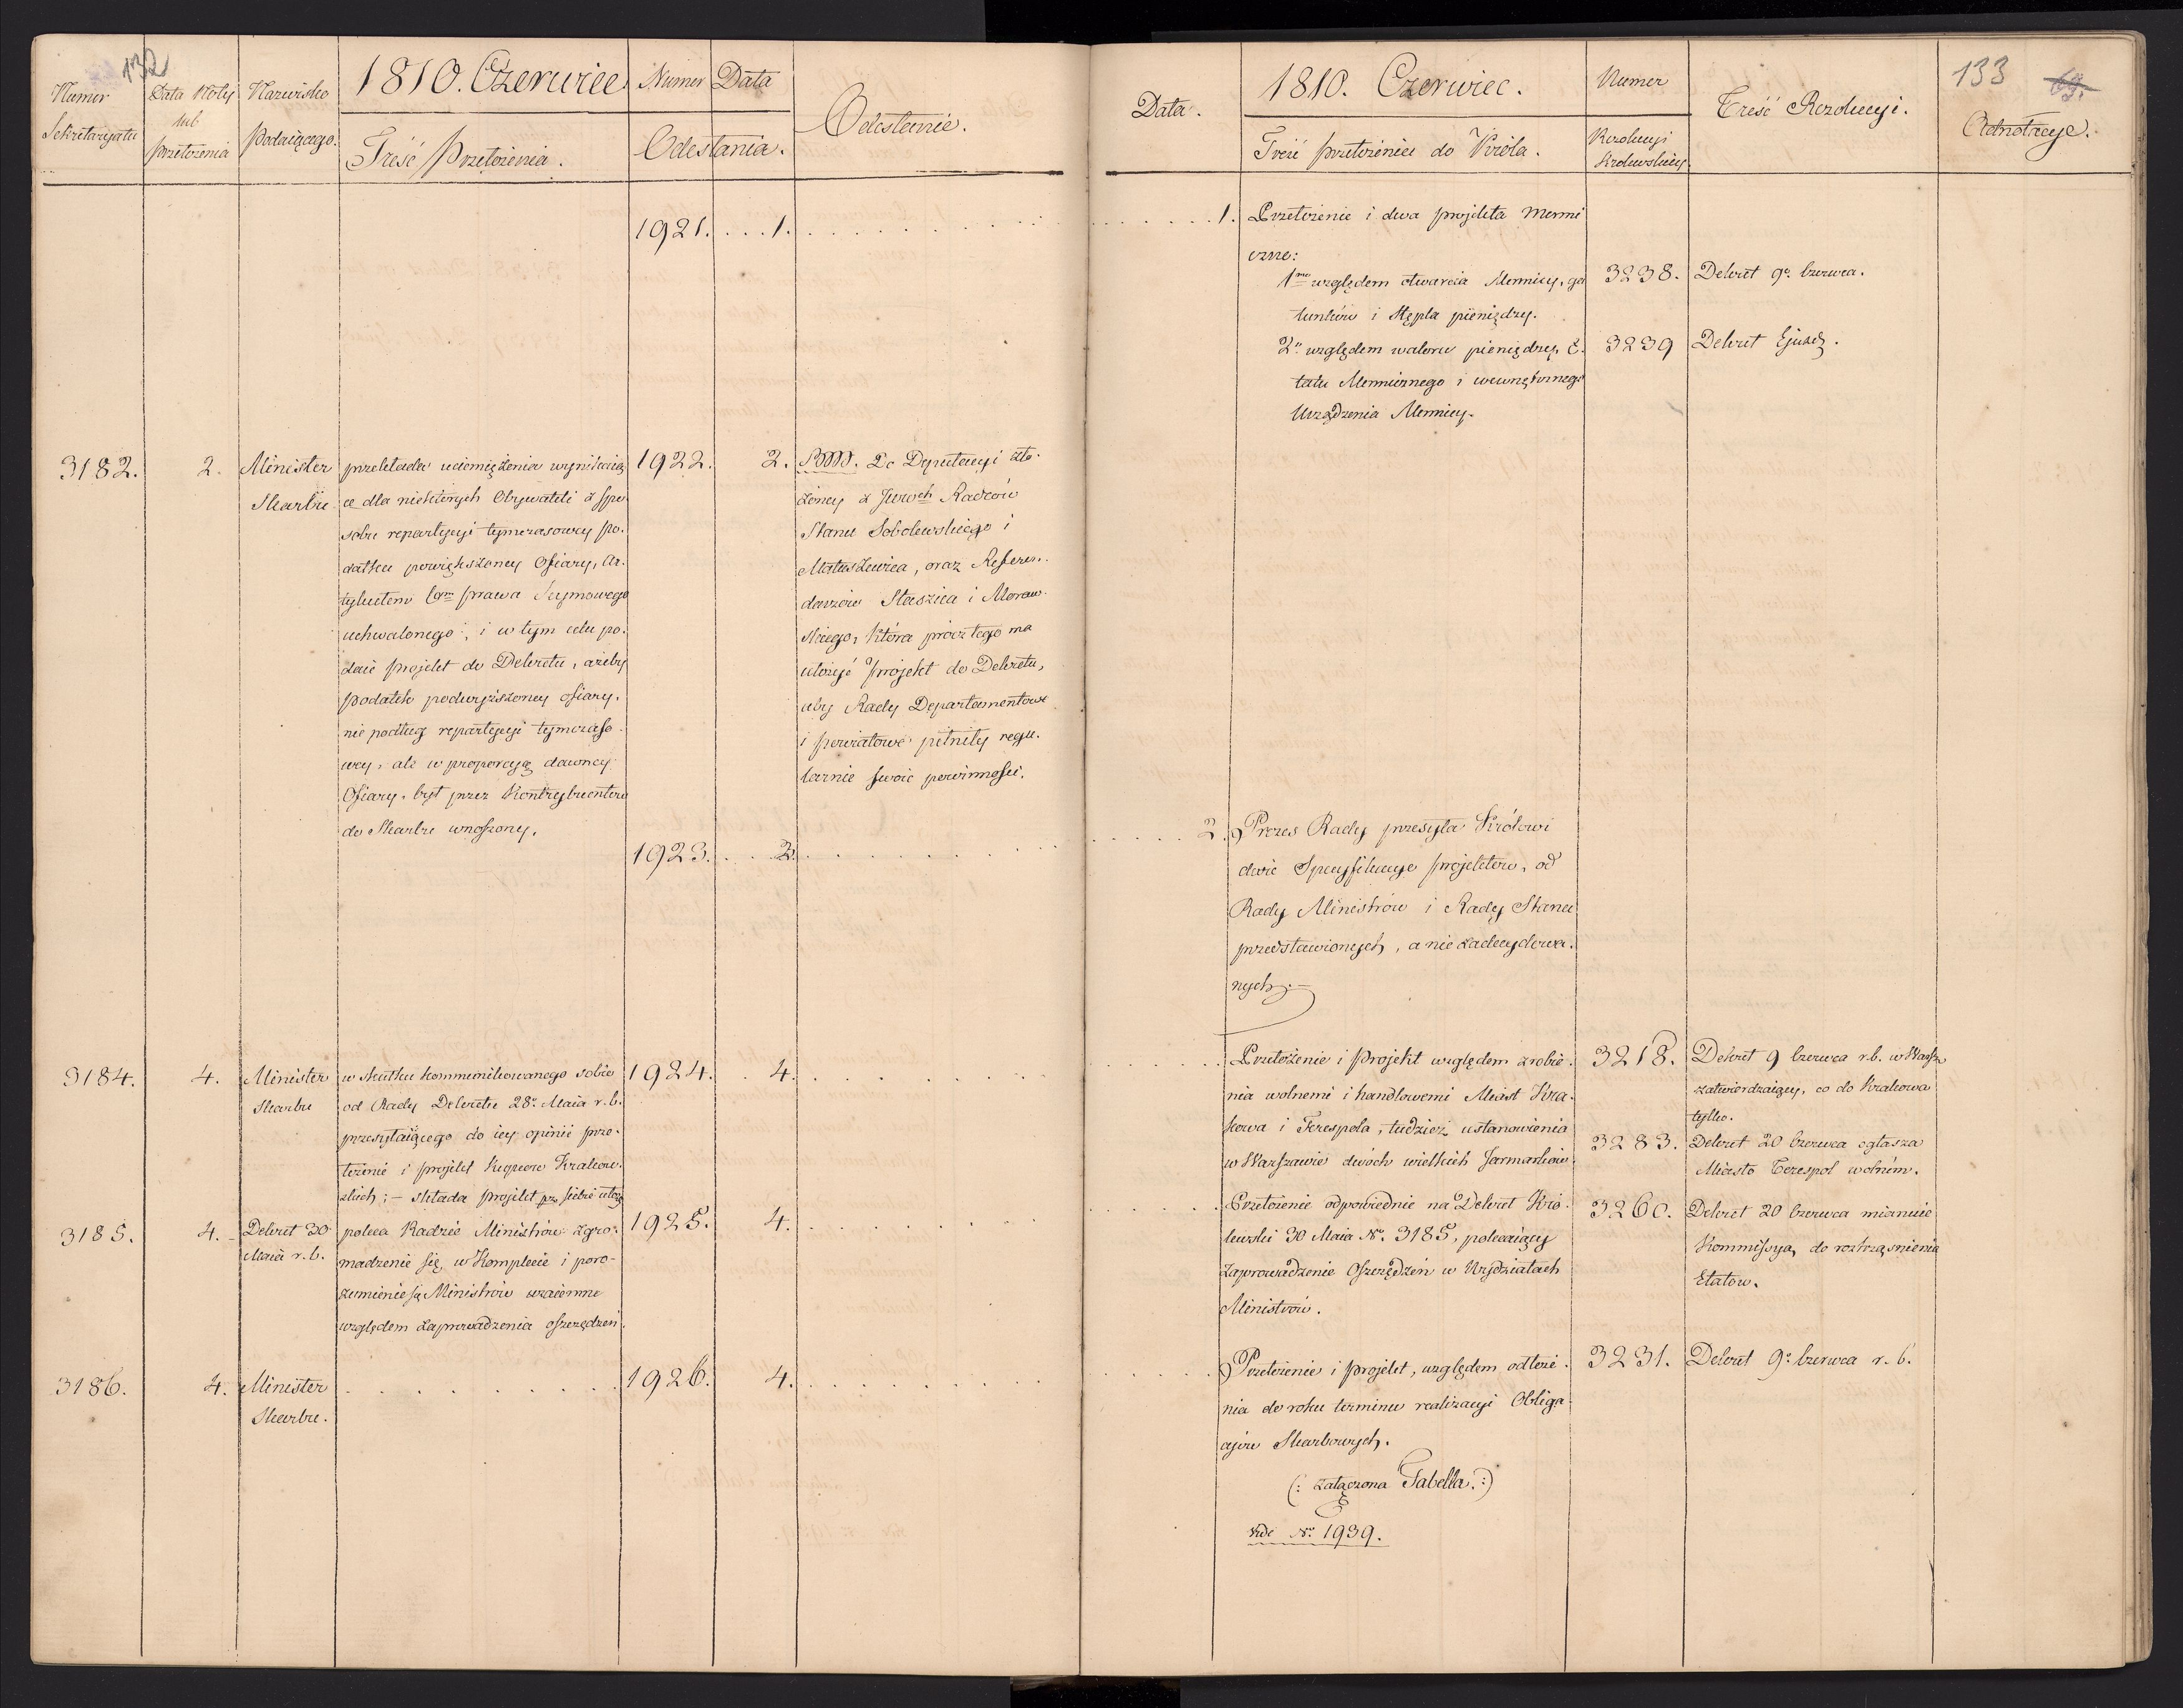 132
Numer
Sekretaryatu
Data Noty
lub
przełożenia
Nazwisko
Podaiącego.
1810. Czerwiec
Treść Przełożenia.
Numer Data
Odesłania.
Odesłanie.
1921. . . . 1. . . . . . . . . . .
3182. 2. Minister
Skarbu
przekłada uciemiężenia wynikaią
ce dla niektórych Obywateli z spo
sobu repartycyi tymczasowey po.
datku powiększoney Ofiary, Ar.
tykułem Prawa Seymowego
uchwalonego, i w tym celu po.
daie projekt do Dekretu, ażeby
Podatek podwyższoney ofiary,
nie podług repartycyi tymczaso.
wey, ale w proporcyą dawney
Ofiary, był przez Kontrybuentów
do Skarbu wnoszony.
1922. 2. Do Deputacyi zło.
żoney z JWch Radców
Stanu Sobolewskiego i
Matuszewica, oraz Referen.
darzów Staszica i Moraw.
skiego, która prócz tego ma
ułożyć projekt do Dekretu,
aby Rady Departamentowe
i powiatowe pełniły regu.
larnie swoie powinności.
1923. . . . 2. . . . . . . . . .
3184. 4. Minister
Skarbu
w skutku kommunikowanego sobie
od Rady Dekretu 28o Maia r. b.
przesyłaiącego do iey opinii prze.
łożenie i projekt Kupców Krakow.
skich; – składa projekt prz. siebie ułoż
1924. 4. . . . . . . . . .
3185. 4. Dekret 30
Maia r. b.
poleca Radzie Ministrów zgro.
madzenie się w Komplecie i poro-
zumienie się Ministrów wzaiemne
względem zaprowadzenia oszczędzeń.
1925. 4. . . . . . . . . .
3186. 4. Minister
Skarbu.
. . . . . . . . . 1926. 4. . . . . . . . . .
133 69.
Data.
1810. Czerwiec.
Treść przełożenia do Króla.
Numer
Rezolucyi
Królewskiey.
Treść Rezolucyi.
Adnotacye.
. . . . . . . 1. Przełożenie i dwa projekta Menni
czne:
1mo względem otwarcia Mennicy, ga
tunków i stępla pieniędzy.
3238. Dekret 9o Czerwca.
2o względem waloru pieniędzy, E.
tatu Mennicznego i wewnętrznego
Urządzenia Mennicy.
3239 Dekret Ejusd.
. . . . . 2. Prezes Rady przesyła Królowi
dwie Specyfikacye projektów, od
Rady Ministrów i Rady Stanu
przedstawionych, a nie zadecydowa.
nych. –
Przełożenie i Projekt względem zrobie.
nia wolnemi i handlowemi Miast Kra.
kowa i Terespola, tudzież ustanowienia
w Warszawie dwóch wielkich Jarmarków.
3218. Dekret 9 Czerwca r. b. w Warsz.
zatwierdzaiący, co do Krakowa
tylko.
3283. Dekret 20 Czerwca ogłasza
Miasto Terespol wolném.
Przełożenie odpowiednie na Dekret Kró.
lewski 30 Maia No. 3185, polecaiący
zaprowadzenie Oszczędzeń w Wydziałach
Ministrów.
3260. Dekret 20 Czerwca mianuie
Kommissyą do roztrząsnienia
Etatów.
Przełożenie i projekt, względem odłoże.
nia do roku terminu realizacyi Obliga.
cyów Skarbowych.
3231. Dekret 9o Czerwca r. b.
(: załączona Tabella. :)
vide No. 1939.